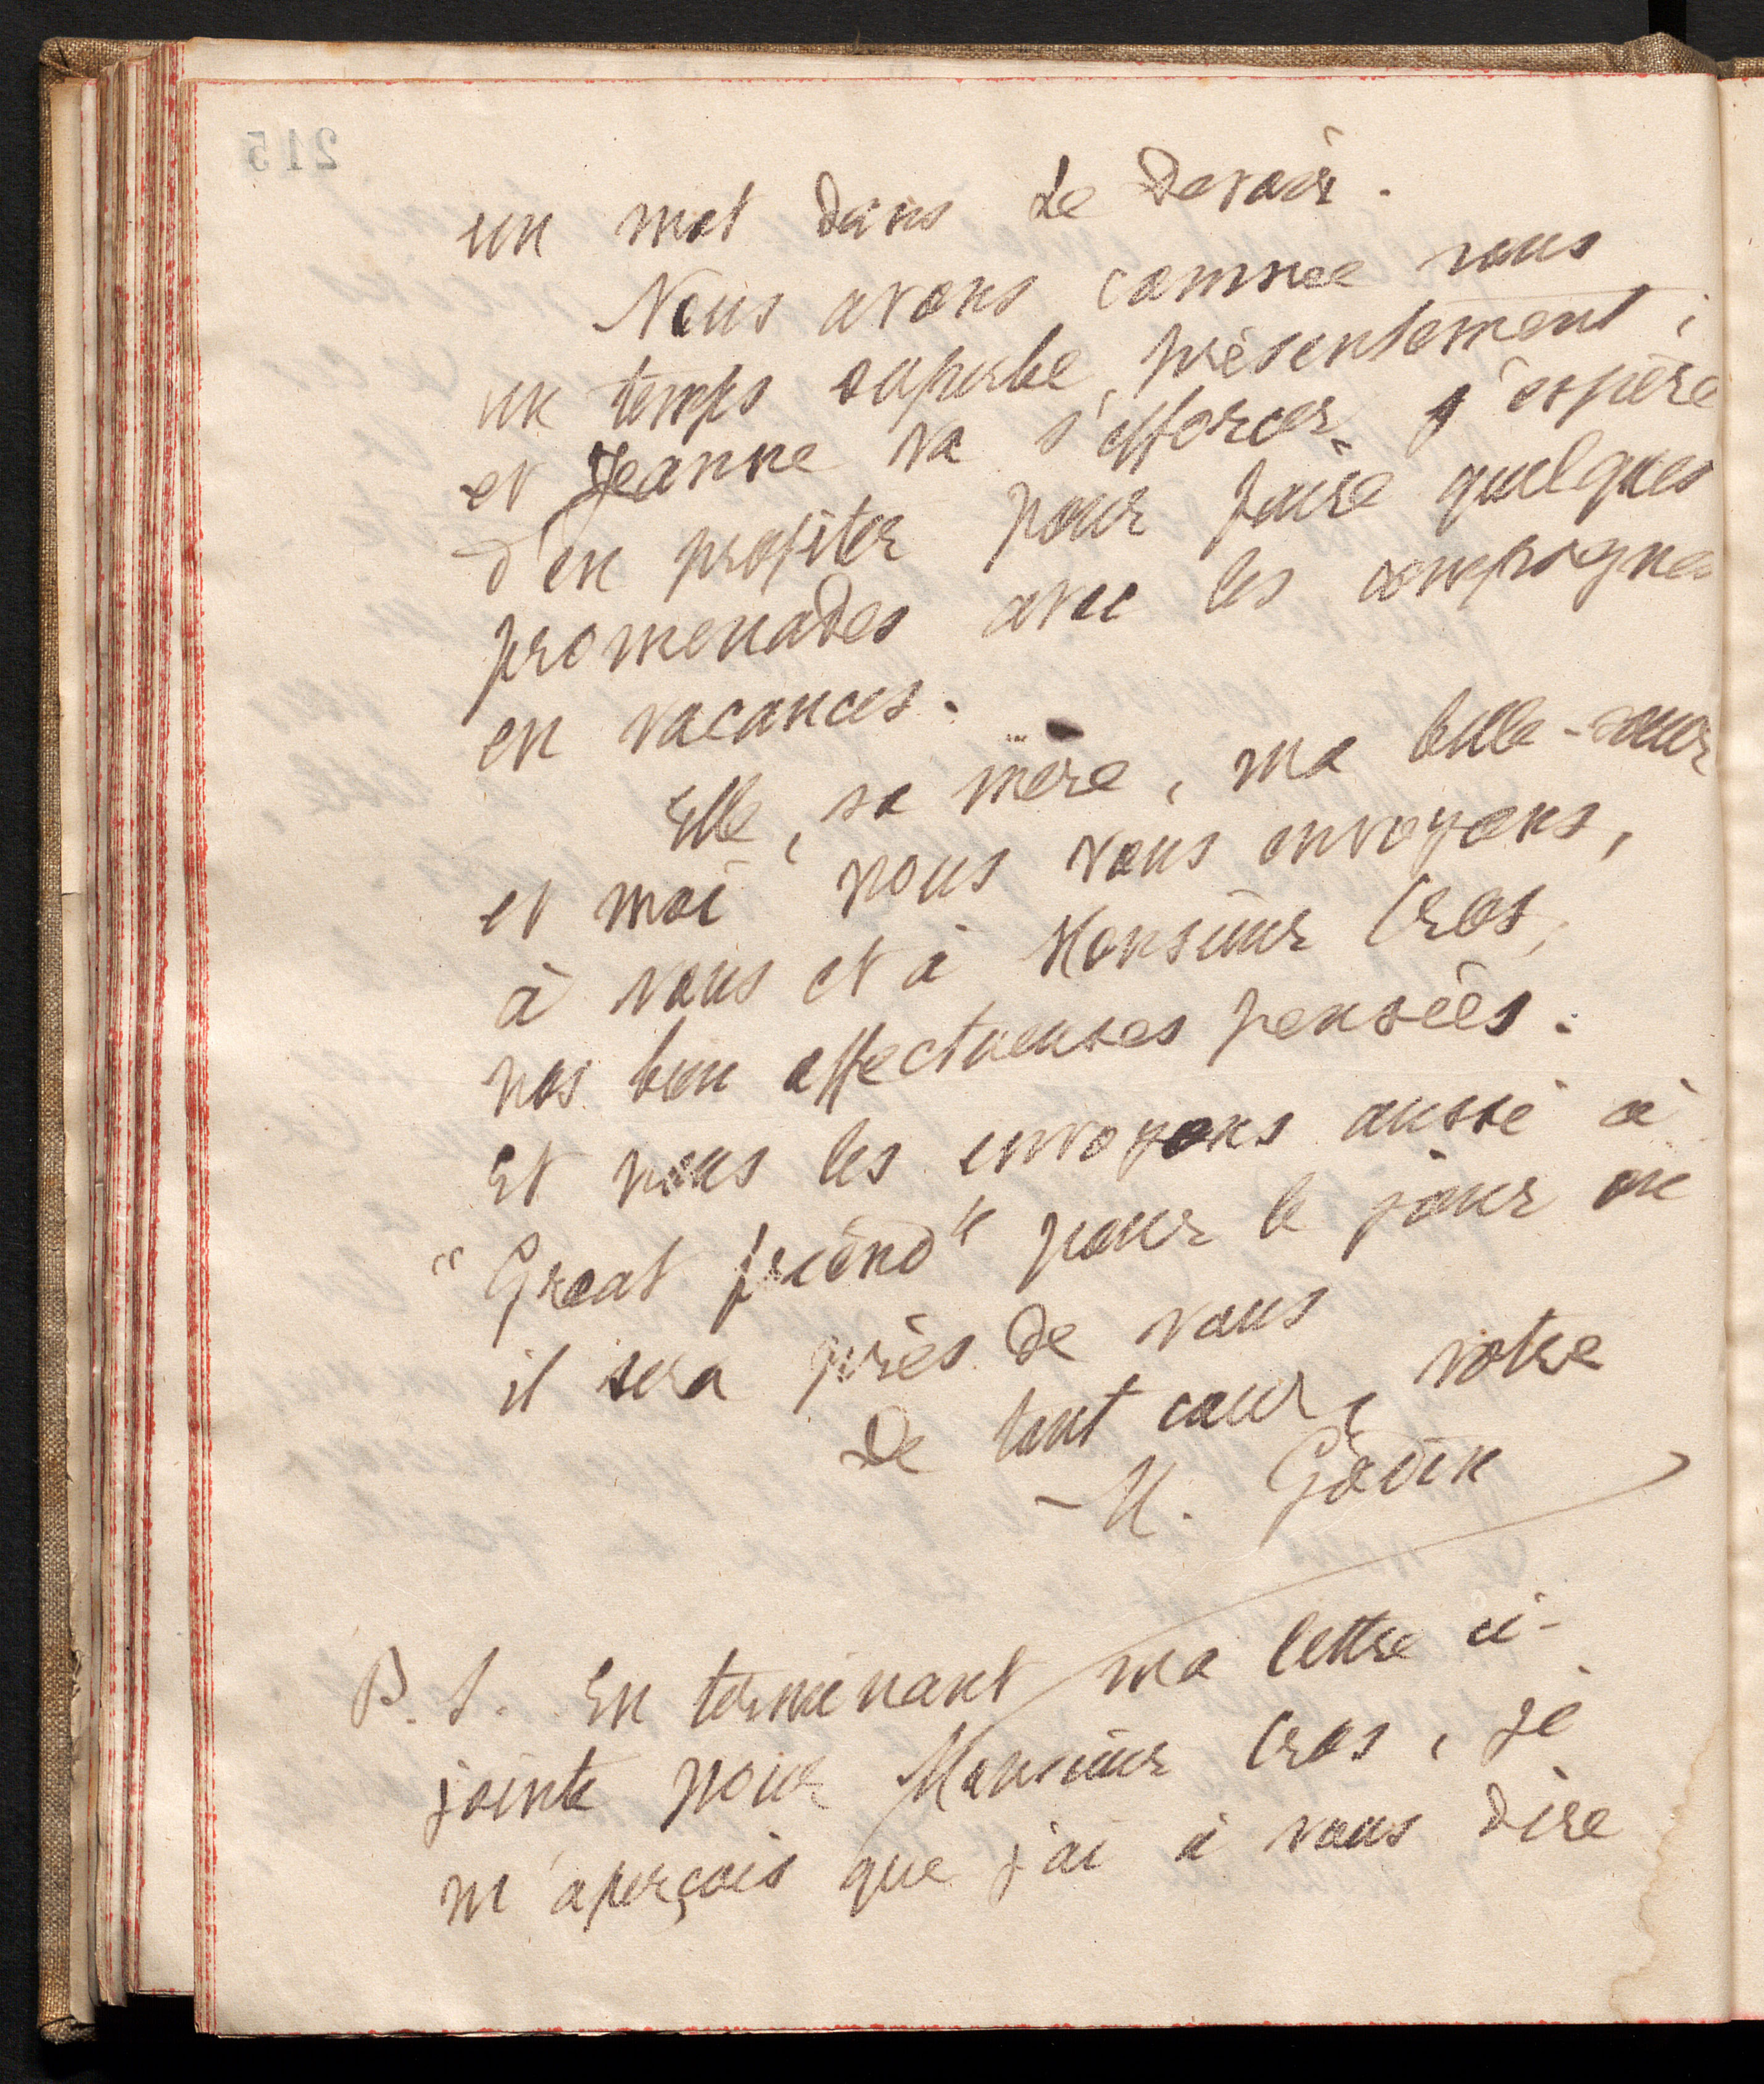 215
un mot dans Le Devoir.
Nous avons comme vous
un temps superbe présentement ;
et Jeanne va s'efforcer, j'espère
d'en profiter pour faire quelques
promenades avec les compagnes
en vacances.
Elle, sa mère, ma belle-sœur
et moi nous vous envoyons,
à vous et à Monsieur Cros,
nos bien affectueuses pensées.
Et nous les envoyons aussi à
"Great friend" pour le jour où
il sera près de vous
De tout cœur, votre
- M. Godin
P. S. En terminant ma lettre ci-
jointe pour Monsieur Cros, je
m'aperçois que j'ai à vous dire